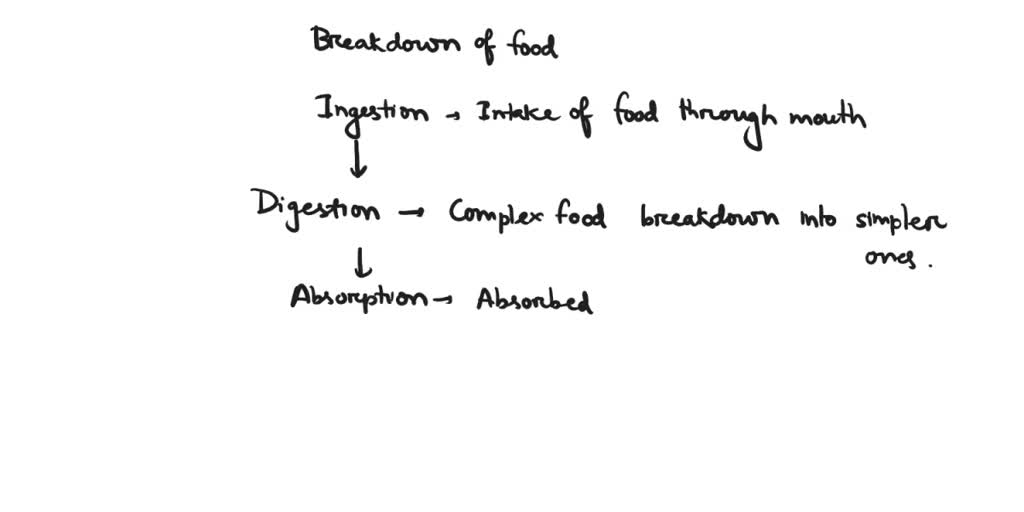 Breakdown of food
Ingestion → Intake of food through mouth
Digestion → Complex food breakdown into simpler
ones.
Absorption → Absorbed